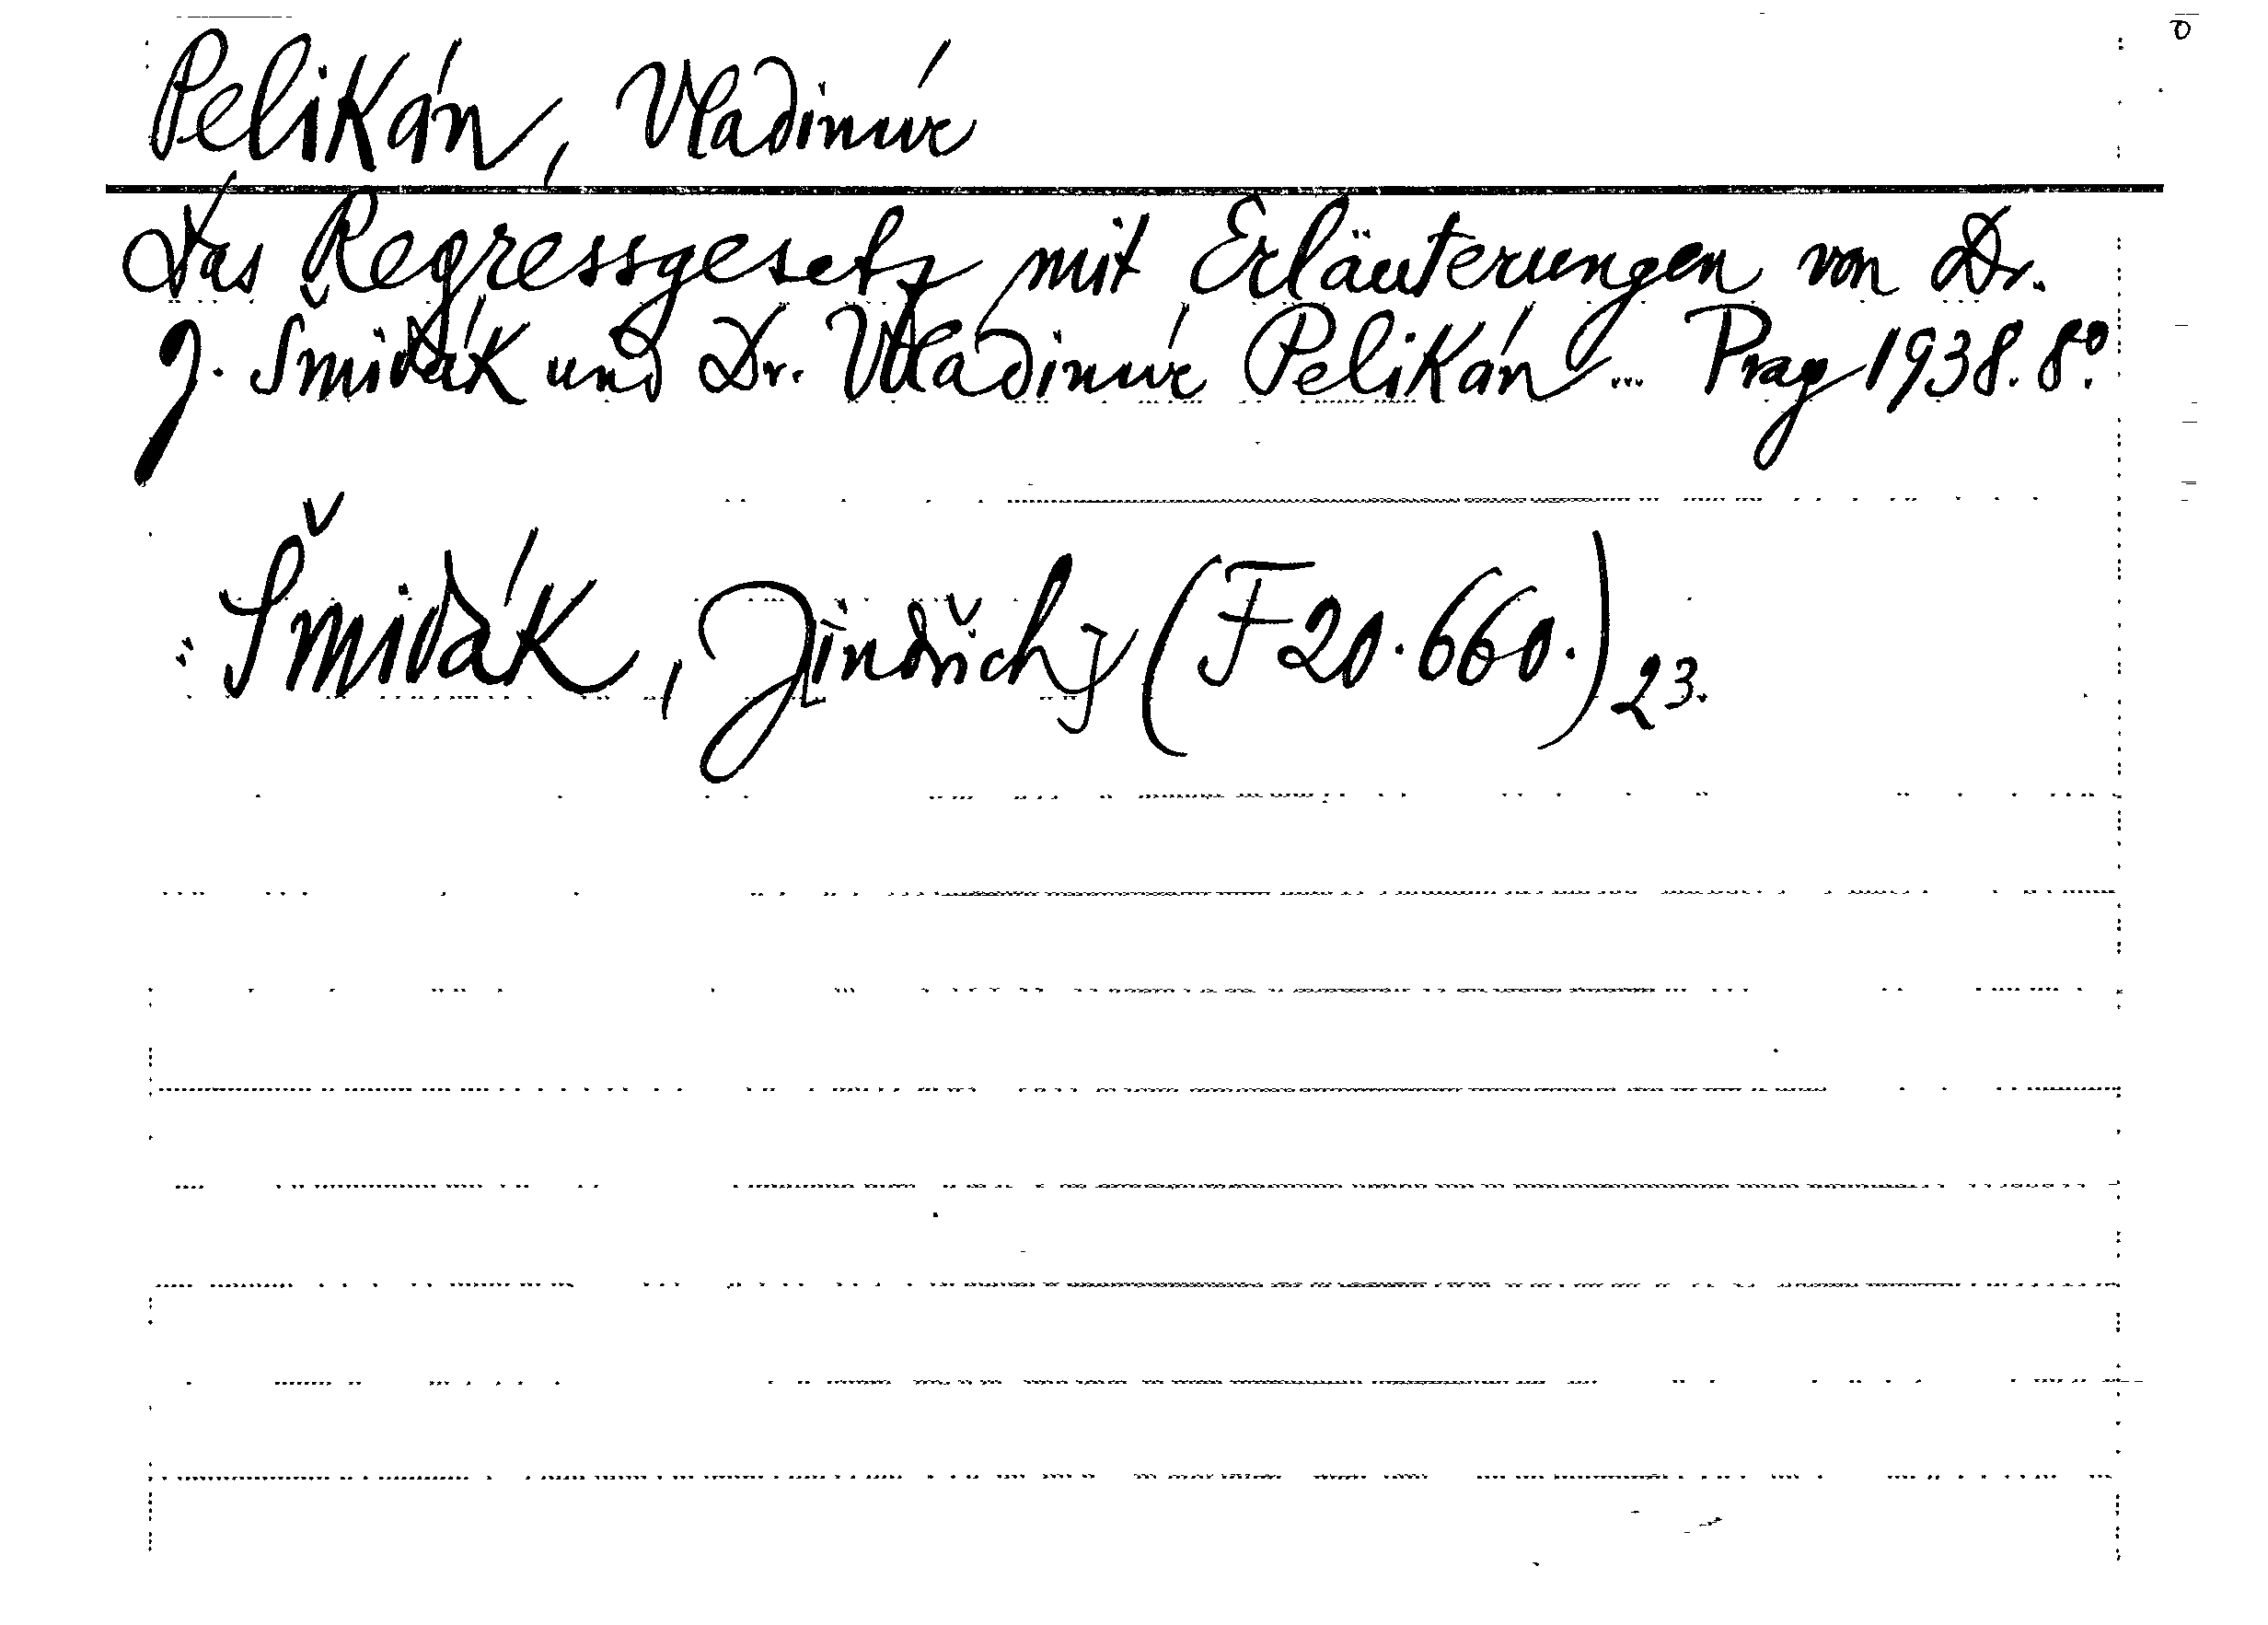 Pelikán, Vladimír
Das Regressgesetz mit Erläuterungen von Dr.
J. Šmidák und Dr. Vladimír Pelikán ... Prag 1938. 8°.
: Šmidák, Jindřich, (F 20.660.) 23.